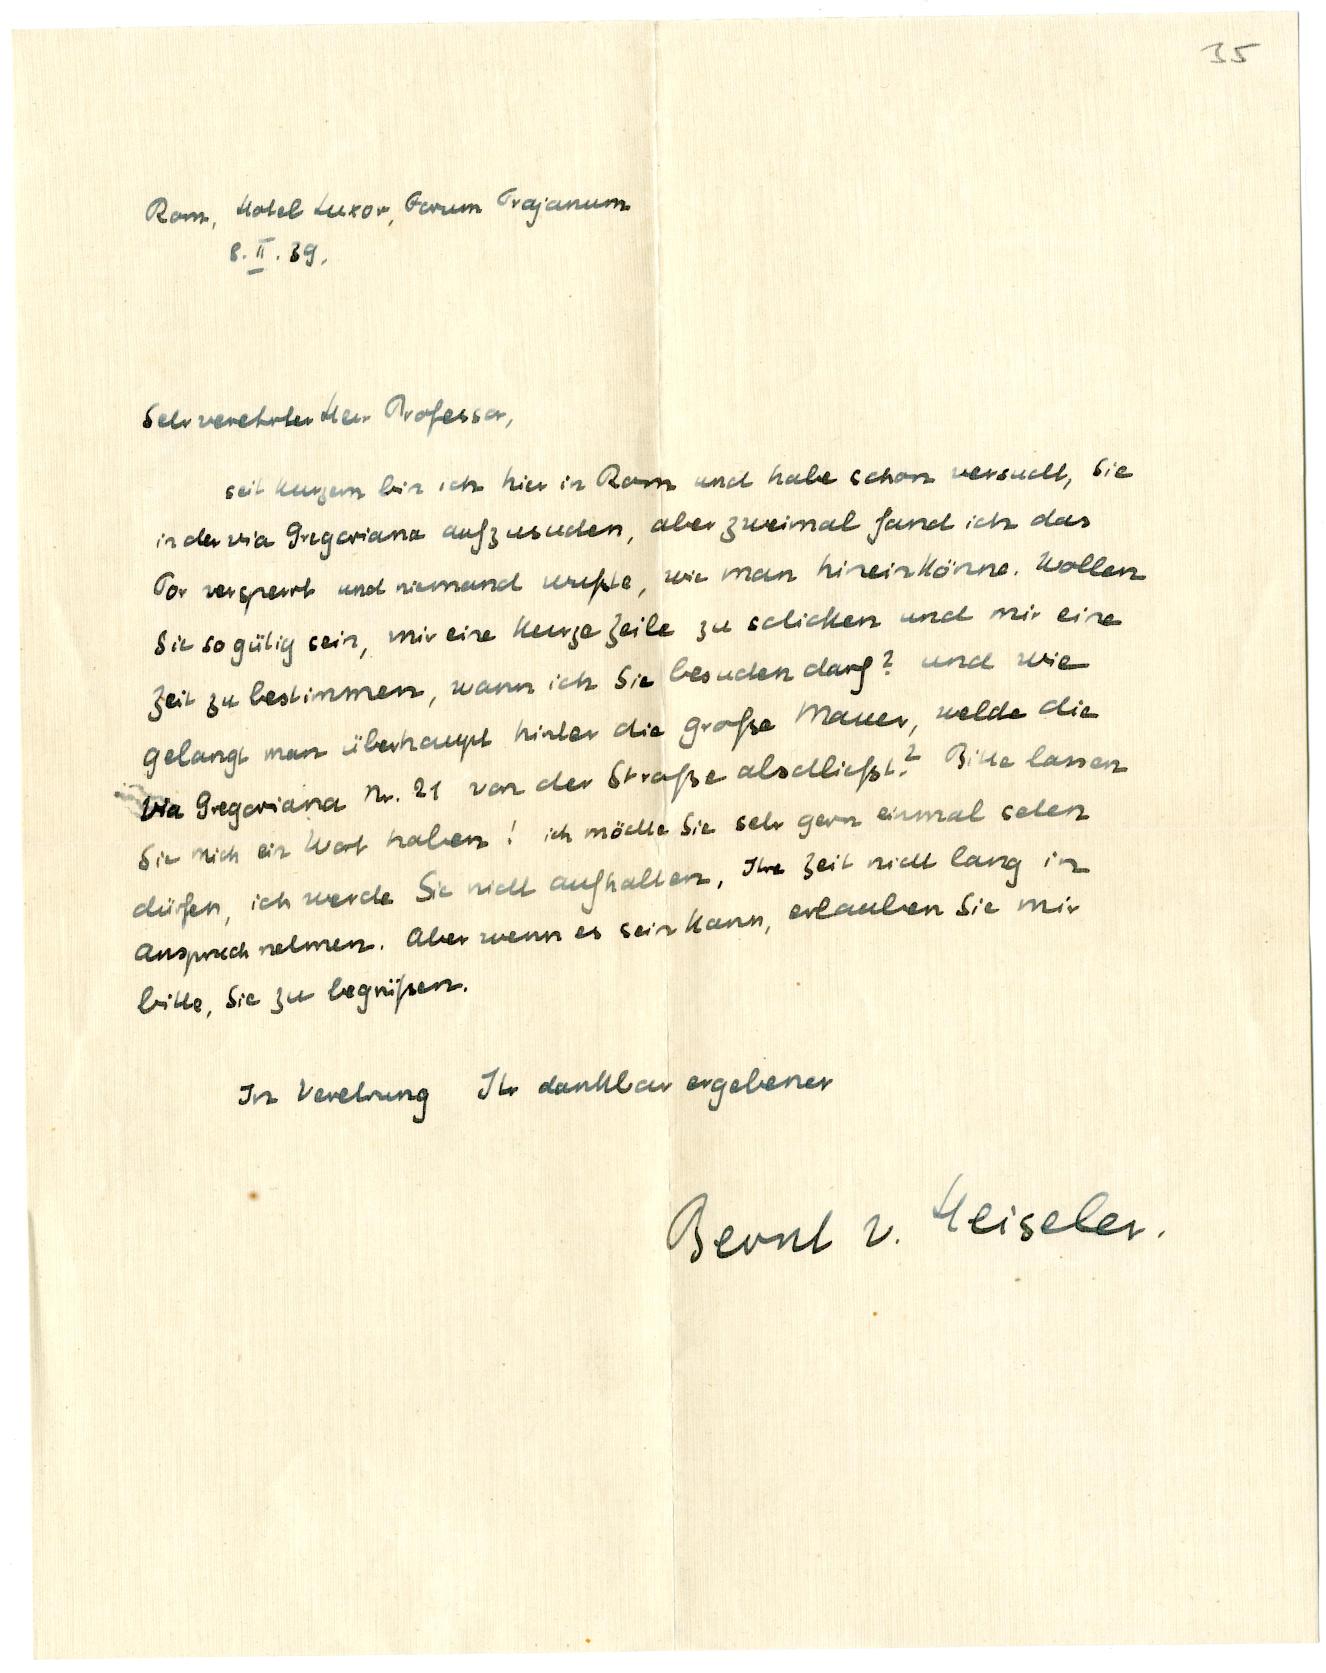 35
Rom, Hotel Luxor, Forum Trajanum
8. II. 39.
Sehr verehrter Herr Professor,
seit kurzem bin ich hier in Rom und habe schon versucht, Sie
in der via Gregoriana aufzusuchen, aber zweimal fand ich das
Tor versperrt und niemand wußte, wie man hineinkönne. Wollen
Sie so gütig sein, mir eine kurze Zeile zu schicken und mir eine
Zeit zu bestimmen, wann ich Sie besuchen darf? und wie
gelangt man überhaupt hinter die große Mauer, welche die
Via Gregoriana Nr. 21 von der Straße abschließt? Bitte lassen
Sie mich ein Wort haben! ich möchte Sie sehr gern einmal sehen
dürfen, ich werde Sie nicht aufhalten, Ihre Zeit nicht lang in
Anspruch nehmen. Aber wenn es sein kann, erlauben Sie mir
bitte, Sie zu begrüßen.
In Verehrung Ihr dankbar ergebener
Bernt v. Heiseler.